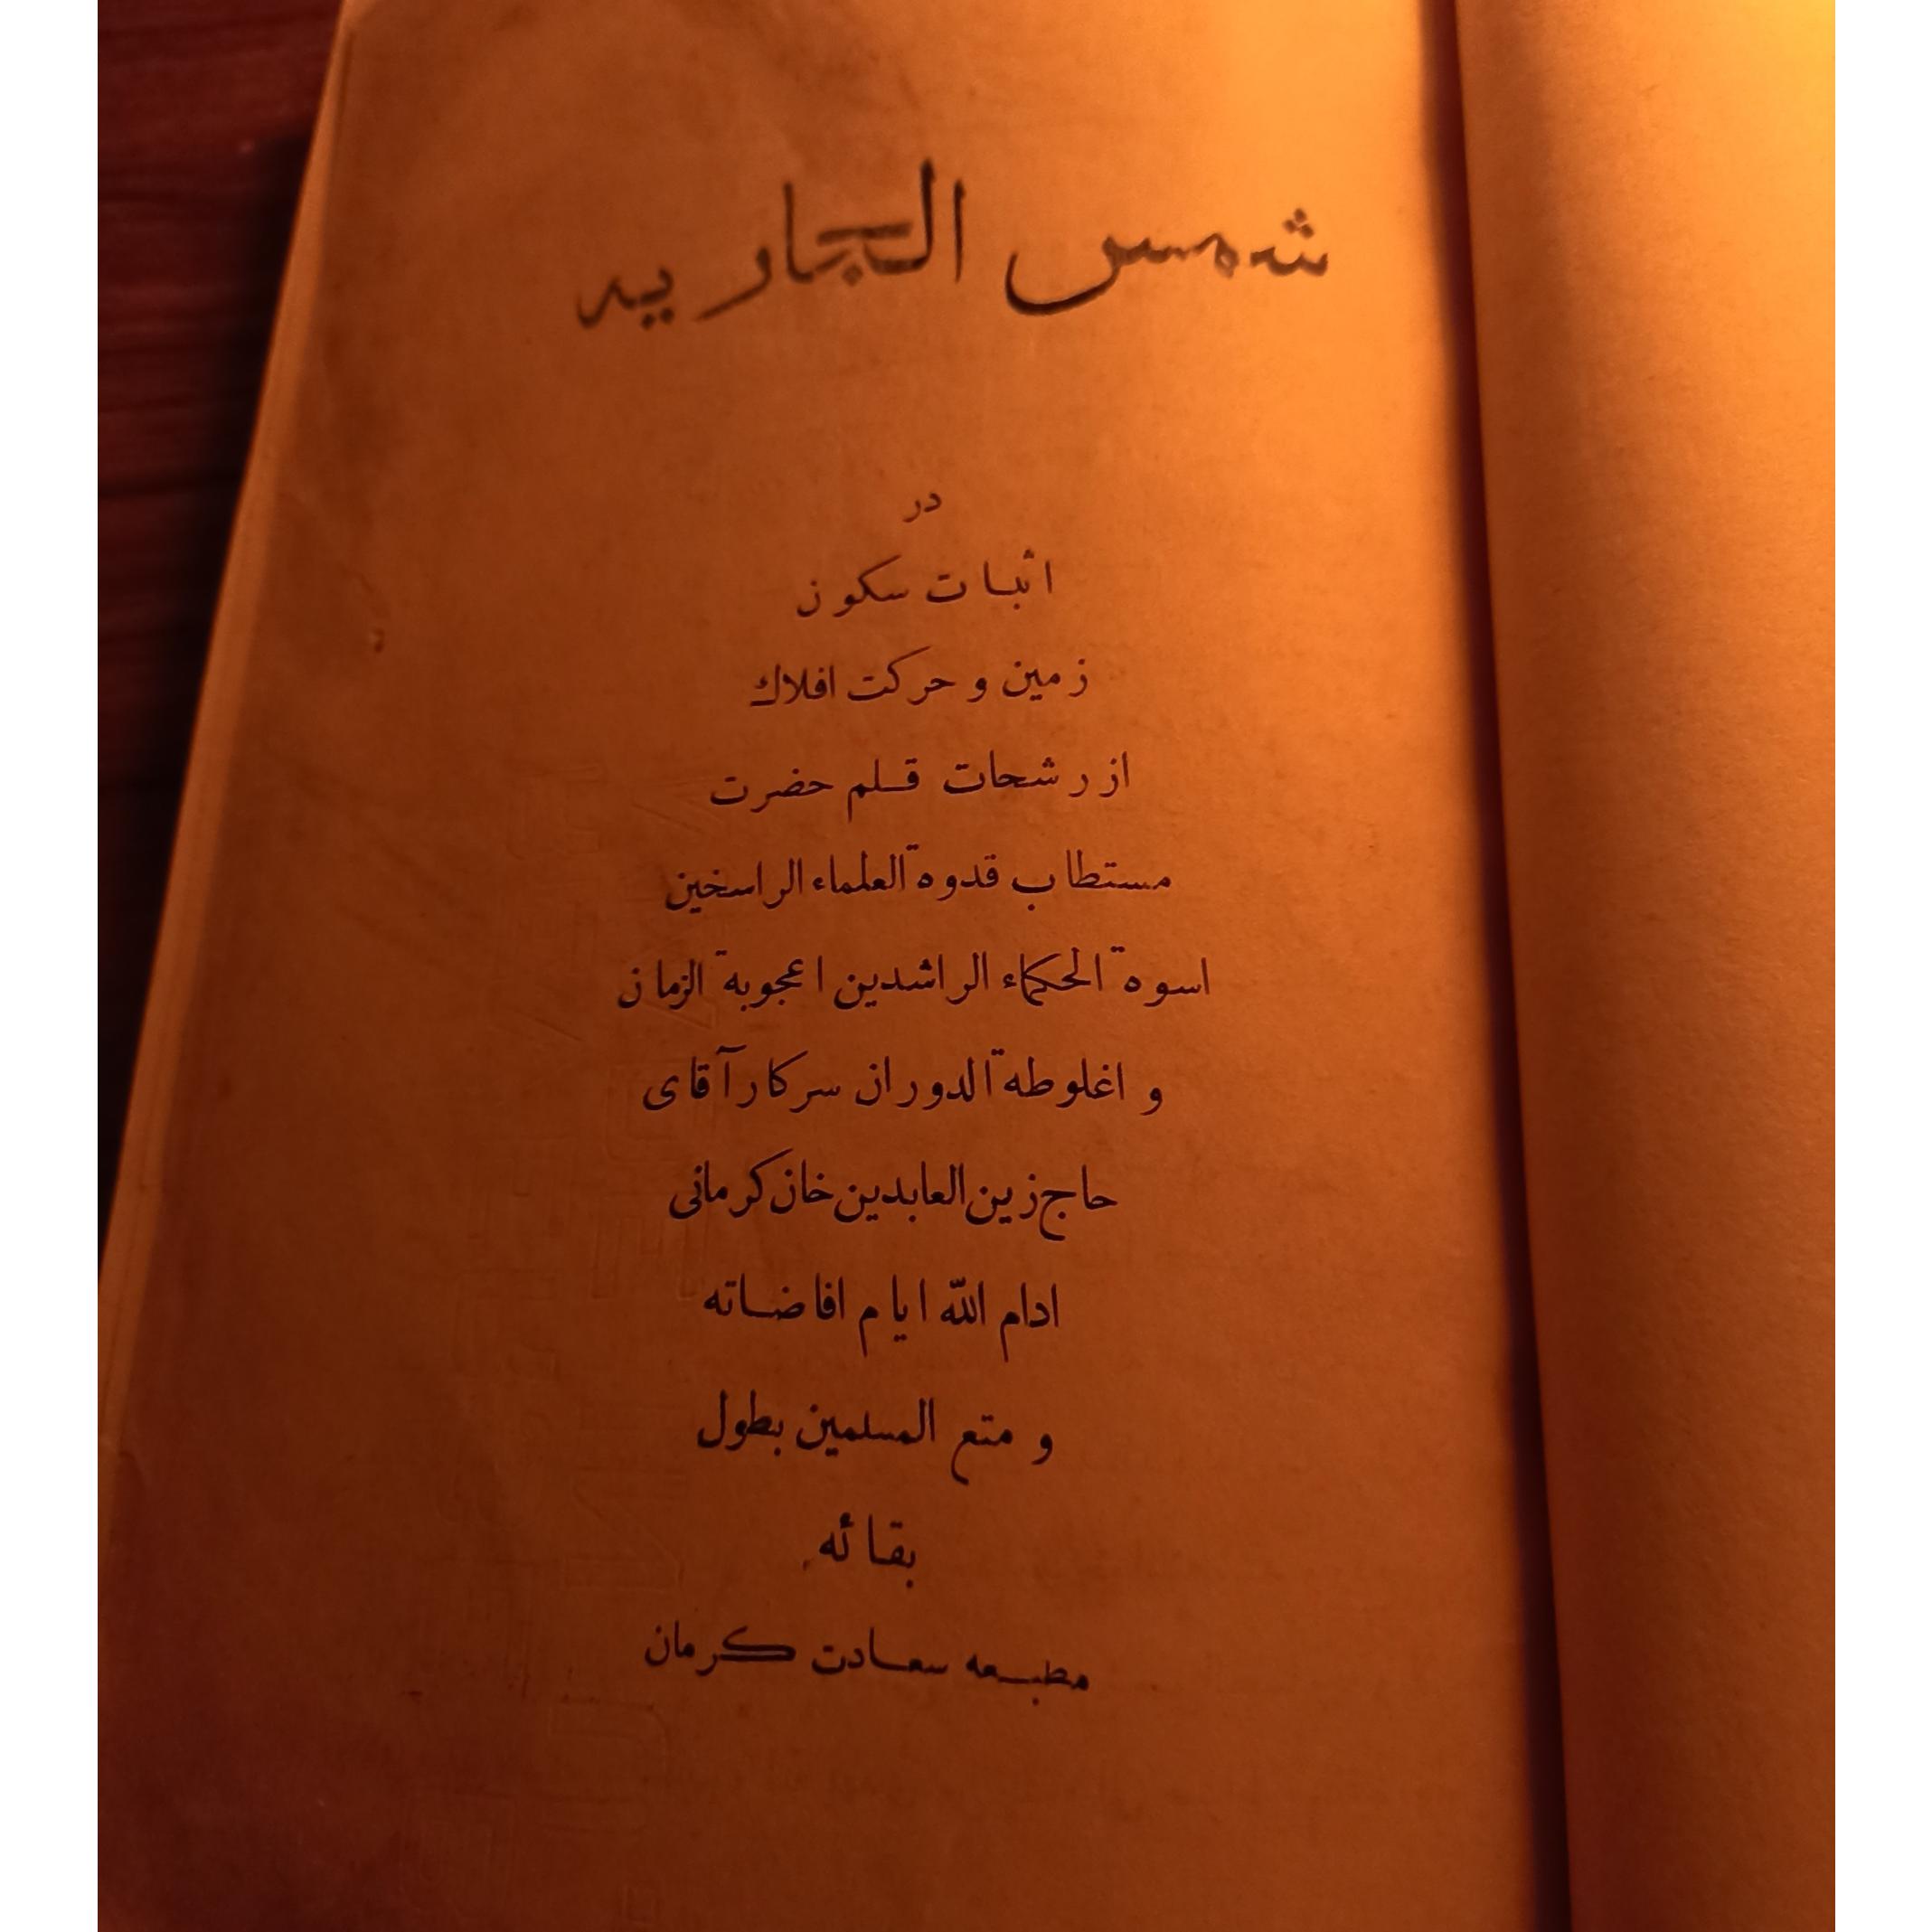 شمس الجاریه
در
اثبات سکون
زمین و حرکت افلاک
از رشحات قلم حضرت
مستطاب قدوة العلماء الراسخین
اسوة الحکماء الراشدین اعجوبة الزمان
و اغلوطة الدوران سرکار آقای
حاج زین العابدین خان کرمانی
ادام الله ایام افاضاته
و متع المسلمین بطول
بقائه
مطبعه سعادت کرمان